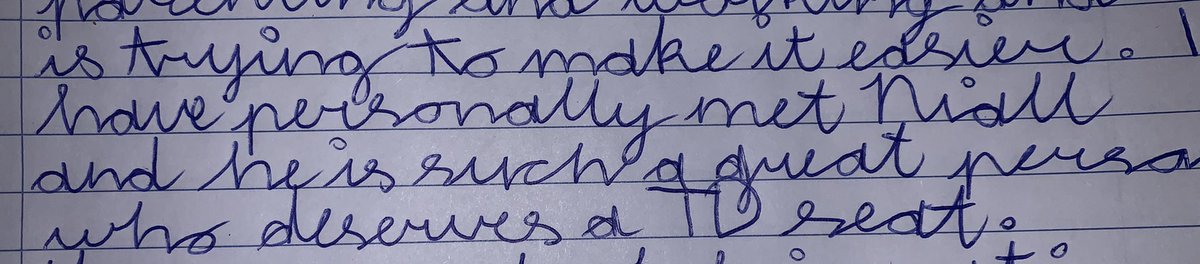 is trying to make it easier. I
have personally met Niall
and he is such a great perso
who deserves a TD seat.